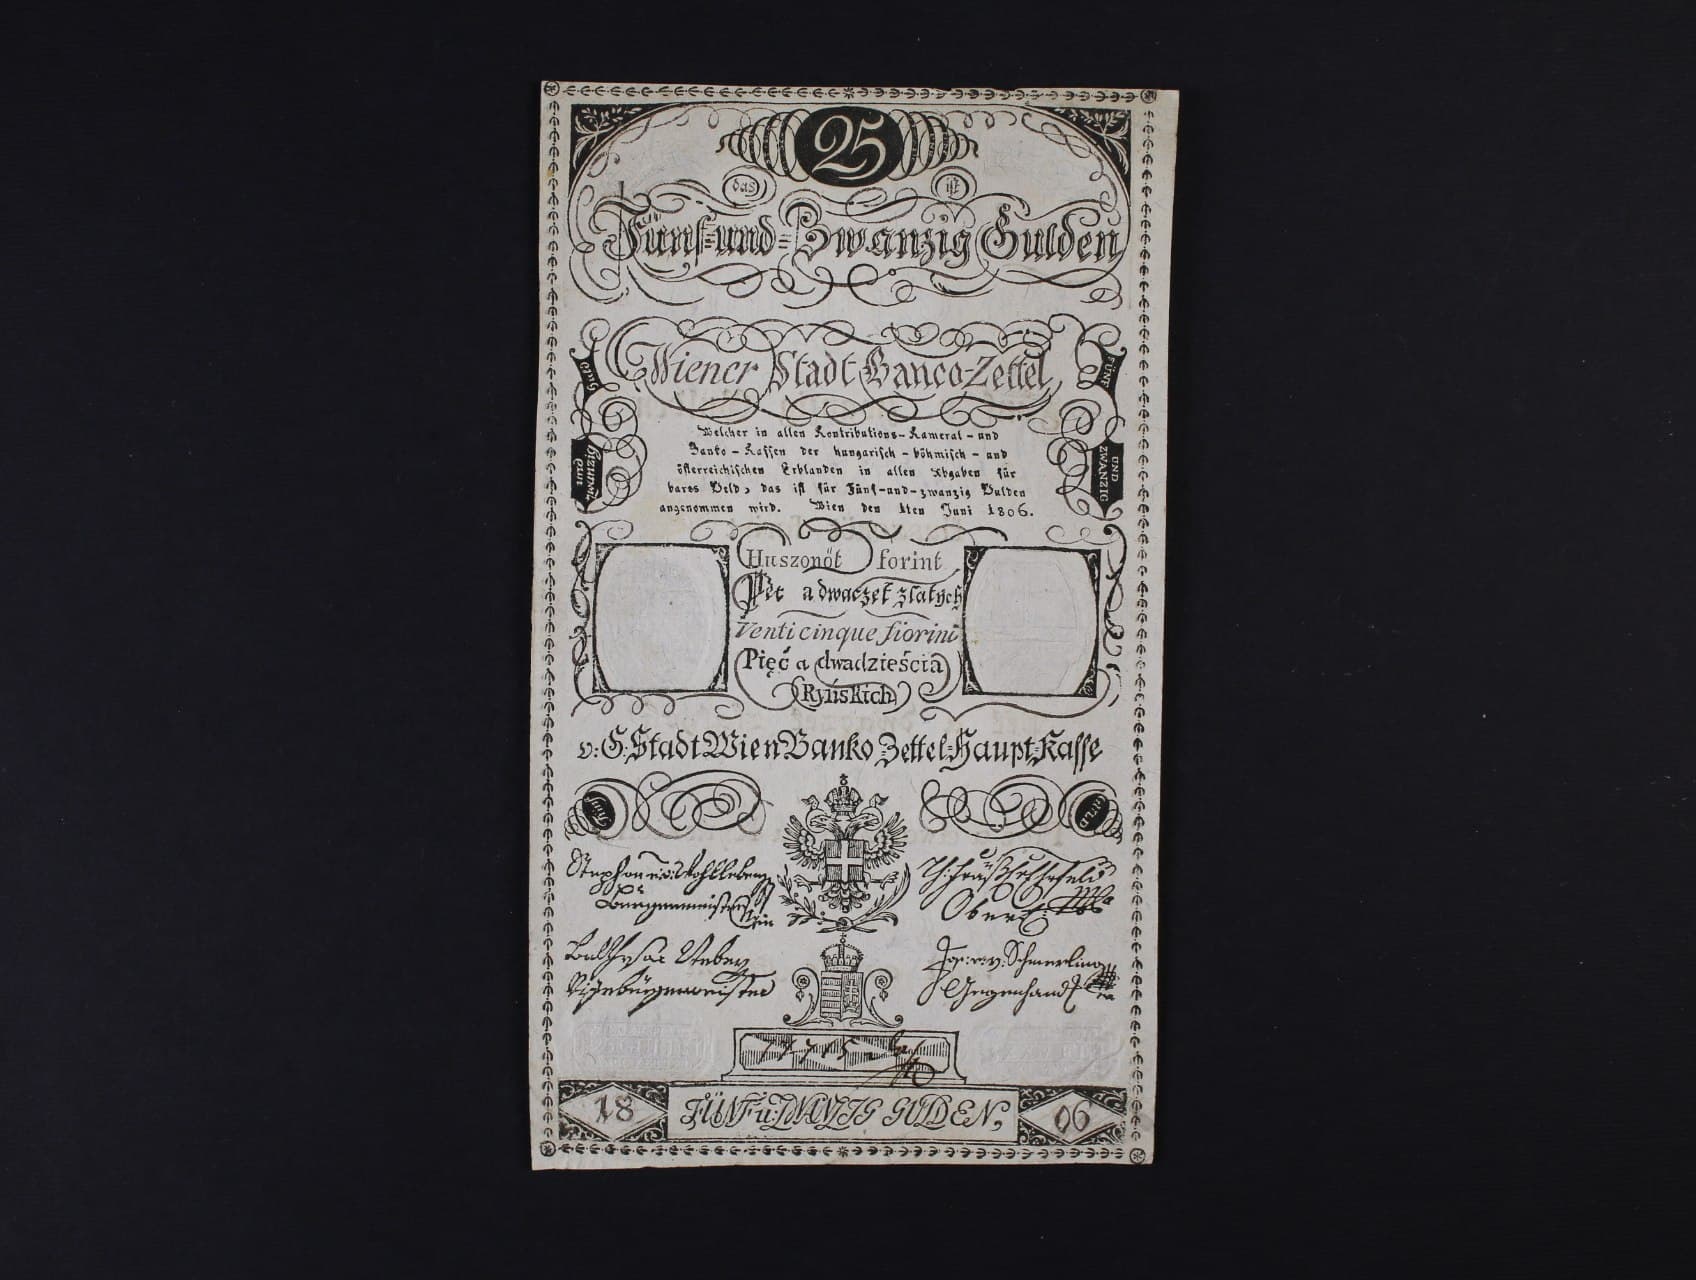 25
das ist
Fünf-und-Zwanzig Gulden
Wiener Stadt Banco-Zettel
FÜNF
UND ZWANZIG
Welcher in allen Kontributions-Kameral-und
Banko-Kassen der hungarisch-böhmisch-und
österreichischen Erblanden in allen Abgaben für
bares Geld, das ist für Fünf-und-zwanzig Gulden
angenommen wird. Wien den 1ten Juni 1806.
Huszonöt forint
Pět a dwaczet zlatych
Venticinque fiorini
Pięć a dwadzieścia
Ryńskich
v: G: Stadt Wien Banko-Zettel-Haupt-Kasse
Fünf
GULD
Stephan v: Wohlleben
Bürgermeister
Oberei:
Balthasar Weber
Vizebürgermeister
Jos: v: Schmerling
Gegenhand
18 FÜNF u: ZWANZIG GULDEN, 06